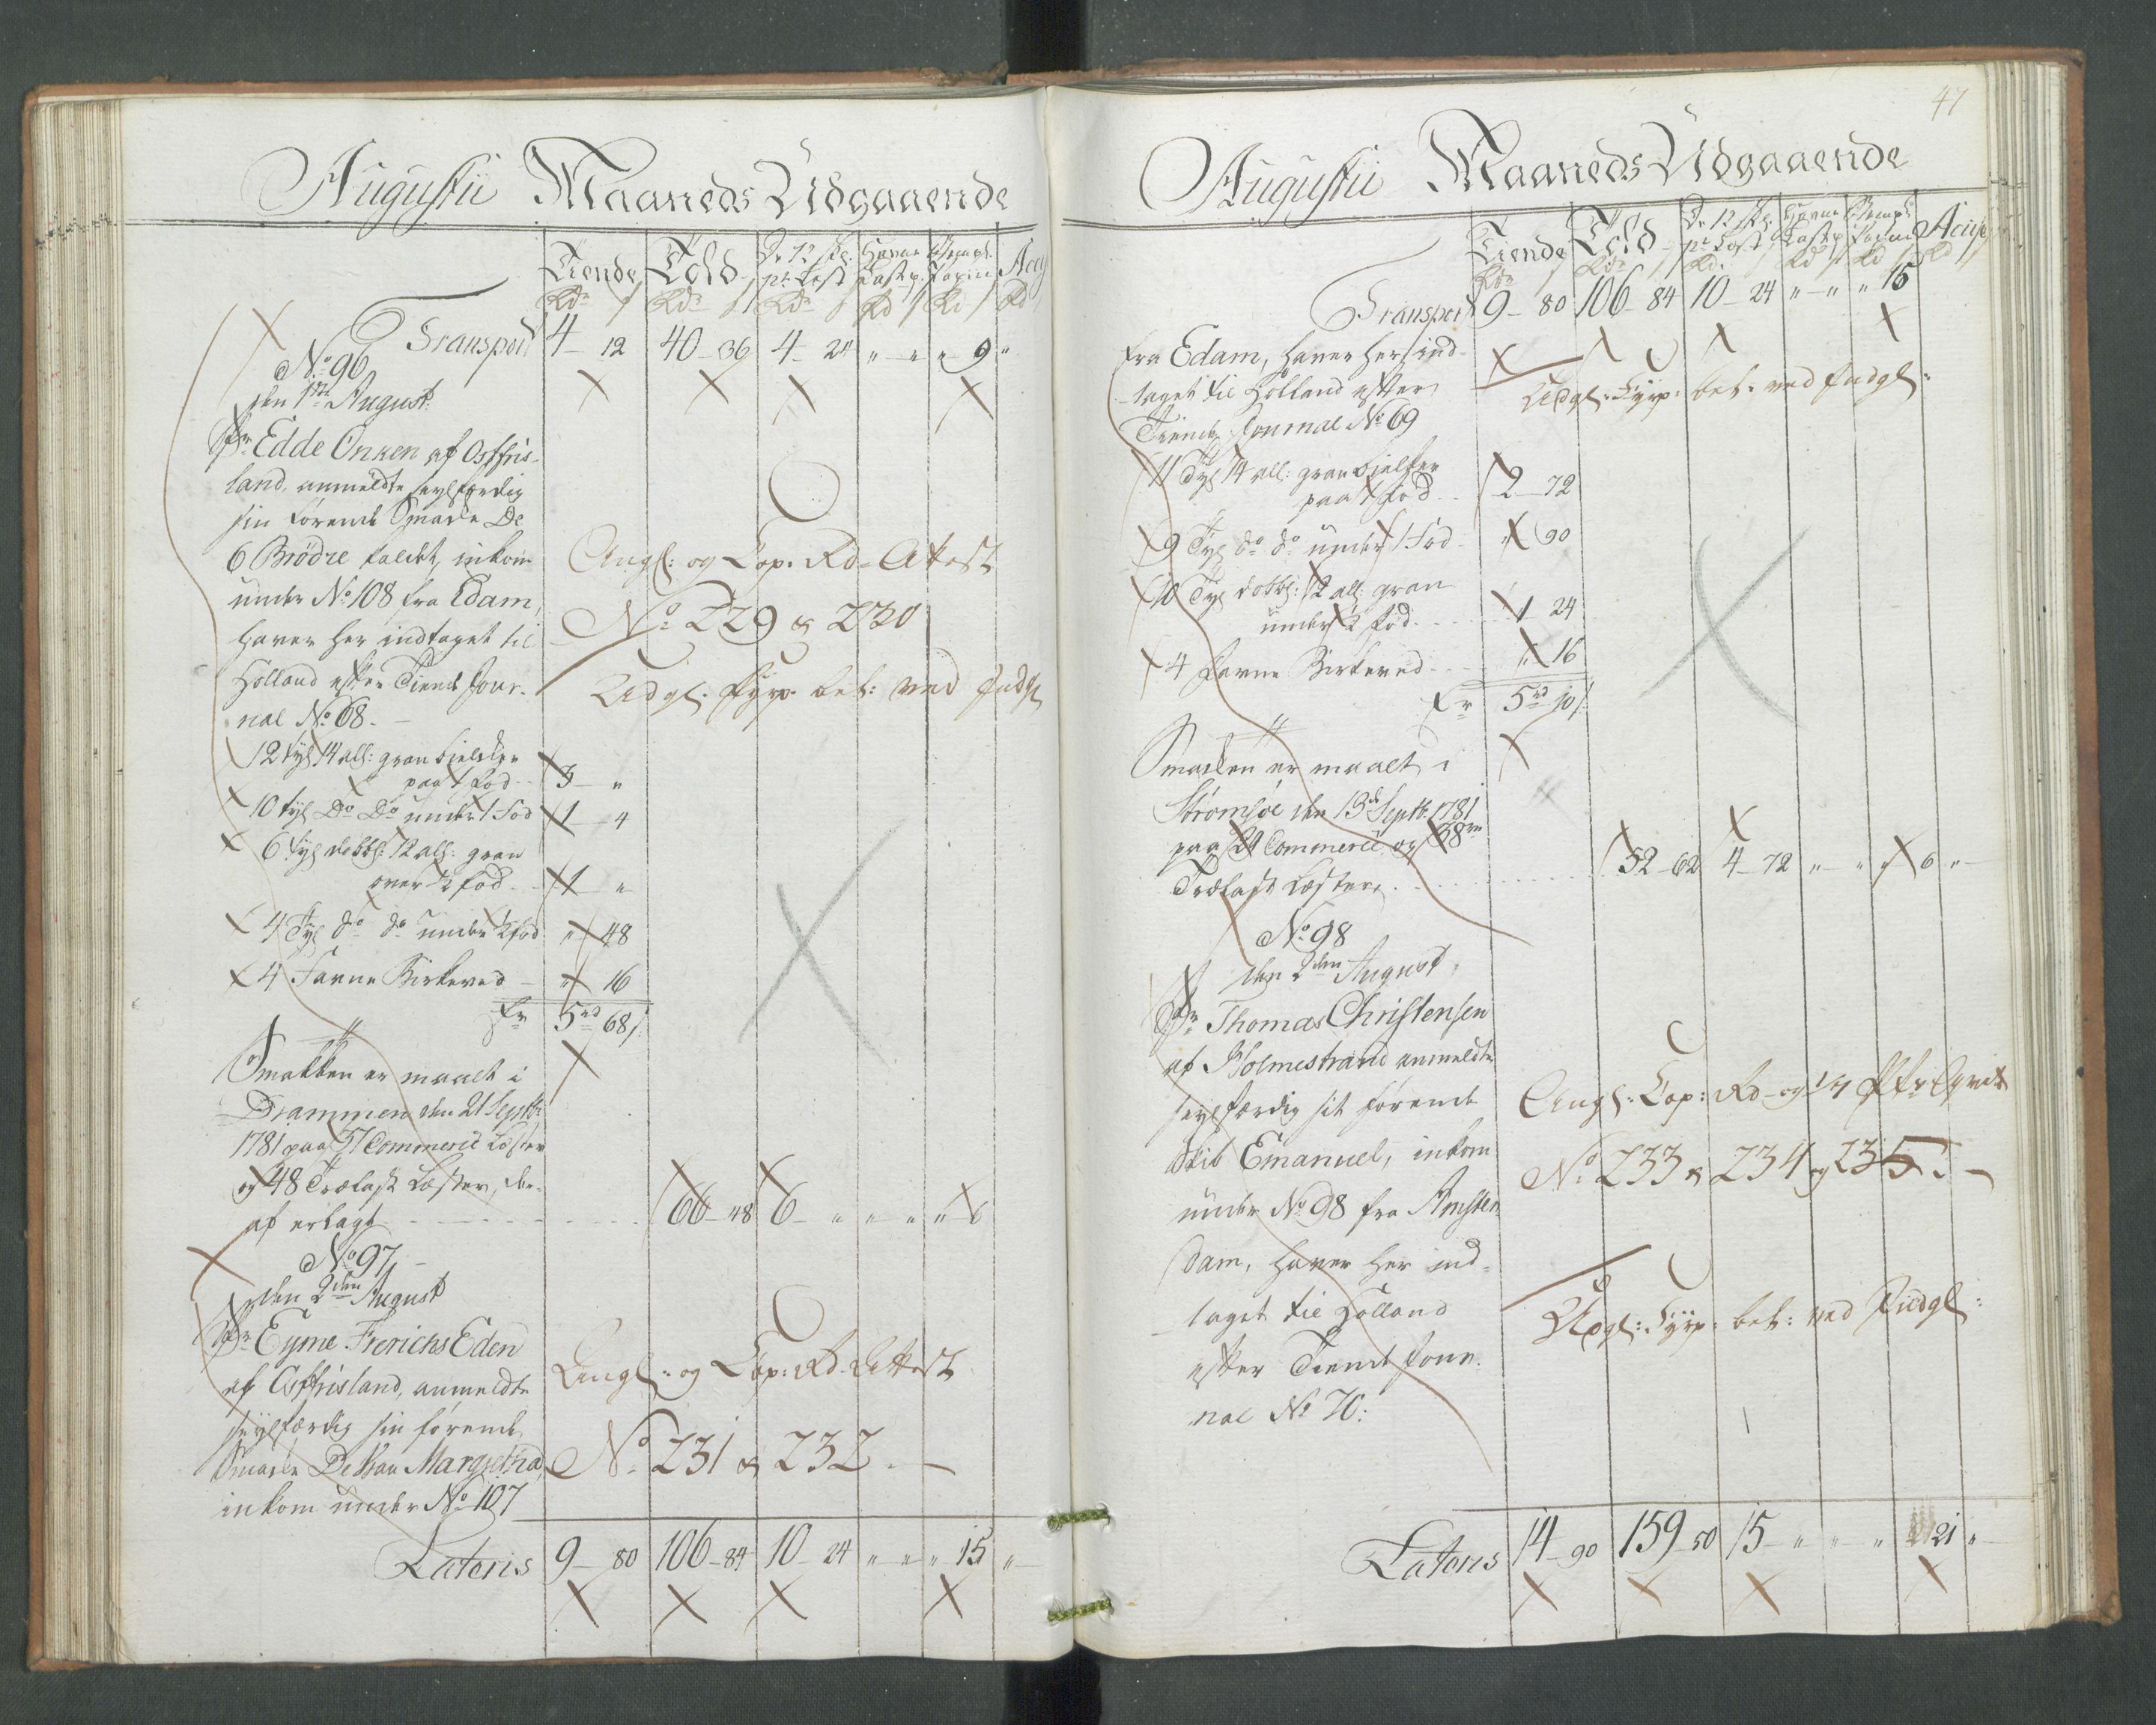 Augustii Maaneds Udgaaende
Tiende Told De 12 sk. pr. Lest Havne Lastp. Stempl. Papiir Acc
Rdr s Rdr s Rdr s Rd s Rd s Rd
Transport 4 – 12 40 – 36 4 – 24 " – " " – 9 "
No. 96
den 1ste August.
Skr. Edde Onken af Ostfris-
land, anmeldte seylfærdig
sin førende Smakke De
6 Brödre kaldet, inkom
under No. 108 fra Edam,
haver her indtaget til
Holland efter Tiende Jour-
nal No. 68. –
Angl: og Cop. Rd. Attest
No. 229 & 230
Udgl. Fyrp. bet: ved Indgl
12 Tyl 14 all: gran bielker
paa 1 Fod 3 – "
10 tyl Do Do under 1 Fod 1 – 4
6 Tyl dobbl: 12 all: gran
over ½ fod 1 – "
4 Tyl do do under ½ fod " 48
4 Favne Birkeved – " 16
Er 5 rd 68 s
Smakken er maalt i
Drammen den 21 Septbr
1781 paa 37 Commerce Læster
og 48 Trælast Læster, der-
af erlagt 66 – 48 6 – " " " " 6
No. 97 –
den 2den August
Skr. Eyme Frerichs Eden
af Ostfrisland, anmeldte
seylfærdig sin førende
Smakke De Frau Margretha,
inkom under No. 107
Angl: og Cop: Rd. Attest
No. 231 & 232 –
Lateris 9 – 80 106 – 84 10 – 24 " " " 15 "
47
Augustii Maaneds Udgaaende
Tiende Told De 12 sk. pr. Lest Havne Lastp. Stempl. Papiir Accise
Rdr s Rdr s Rd. s Rd s Rd s Rd s
Transport 9 – 80 106 – 84 10 – 24 " – " " 15
fra Edam, haver her ind-
taget til Holland efter
Tiende Journal No. 69
Udgl: Fyrp: bet: ved Indgl:
11 Tyl 14 all: gran bielker
paa 1 fod 2 – 72
9 Tyl do do under 1 Fod " 90
10 Tyl dobbl: 12 all: gran
under ½ fod 1 24
4 Favne Birkeved " 16
Er 5 rd 10 s
Smakken er maalt i
Strømsøe den 13de Septbr. 1781
paa 29 Commerce og 38
Trælast Læster 52 – 62 4 – 72 " – " " 6 " –
No. 98
den 2den August,
Skr. Thomas Christensen
af Holmestrand anmeldte
seylfærdig sit førende
Skib Emanuel, inkom
under No. 98 fra Amster
dam, haver her ind-
taget til Holland
efter Tiende Jour-
nal No. 70:
Angl: Cop: Rd. og
No. 233 & 234 og 235. –
Udgl: Fyrp: bet: ved Indgl:
Lateris 14 – 90 159 – 50 15 – " " – " 21 " –